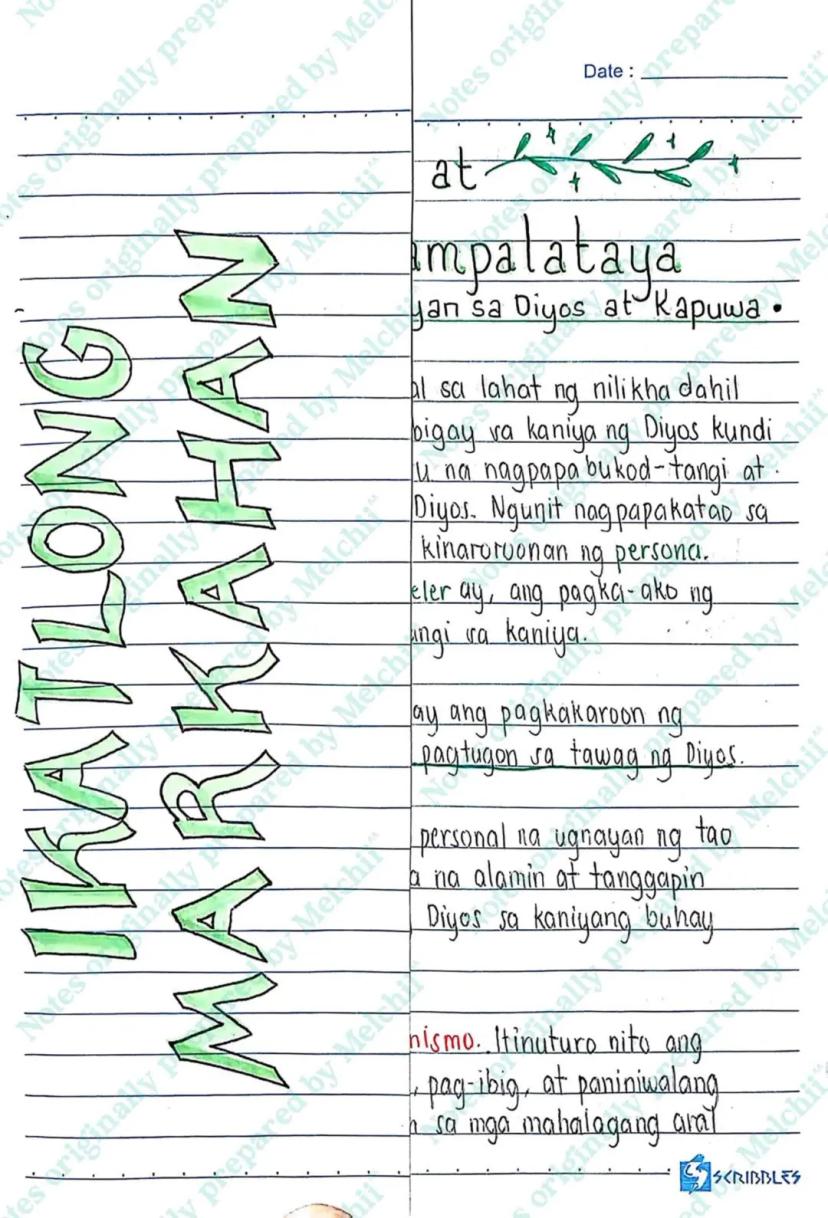 IKATLONG
MARKAHAN
Date :
at
ampalataya
yan sa Diyos at Kapuwa •
al sa lahat ng nilikha dahil
bigay sa kaniya ng Diyos kundi
u na nagpapabukod-tangi at
Diyos. Ngunit nagpapakatao sa
kinaroroonan ng persona.
eler ay, ang pagka-ako ng
angi sa kaniya.
ay ang pagkakaroon ng
pagtugon sa tawag ng Diyos.
personal na ugnayan ng tao
a na alamin at tanggapin
Diyos sa kaniyang buhay
nismo. Itinuturo nito ang
, pag-ibig, at paniniwalang
a sa mga mahalagang aral
SCRIBBLES
Notes originally prepared by Melchii